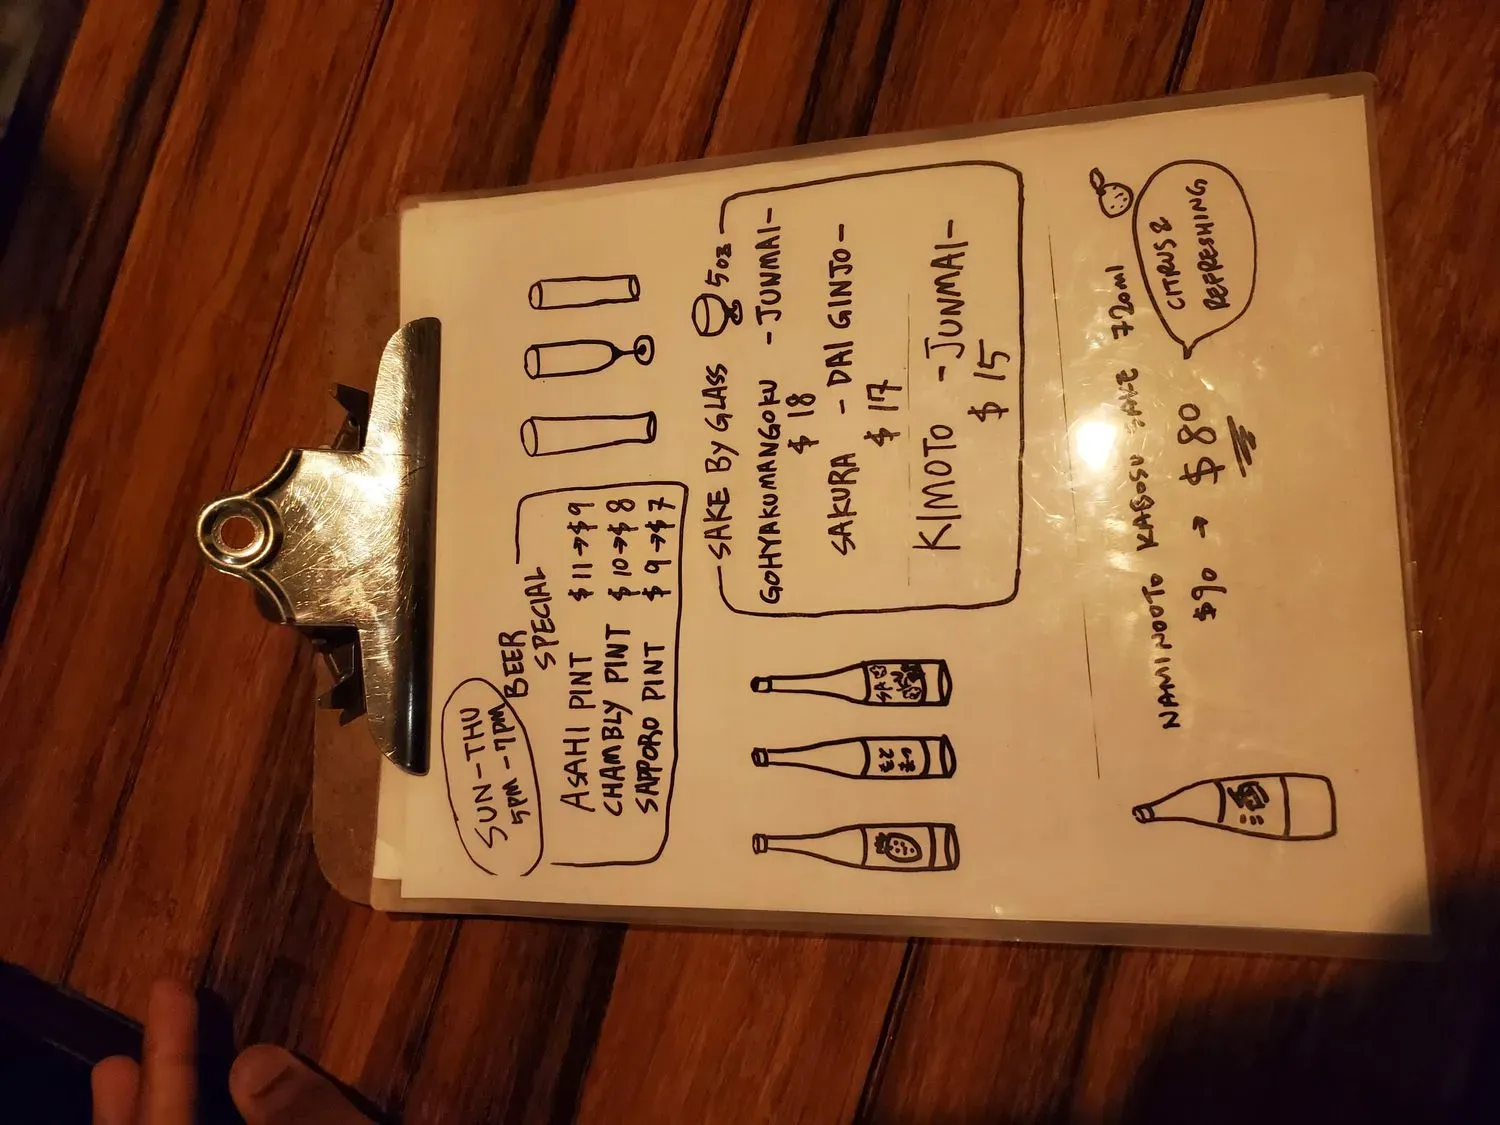 SUN-THU
5PM-7PM
BEER
SPECIAL
ASAHI PINT $11→$9
CHAMBLY PINT $10→$8
SAPPORO PINT $9→$7
SAKE BY GLASS 5oz
GOHYAKUMANGOKU -JUNMAI-
$18
SAKURA -DAI GINJO-
$17
KIMOTO -JUNMAI-
$15
NAMINOOTO KABOSU SAKE 720ml
$90 → $80
CITRUS &
REFRESHING